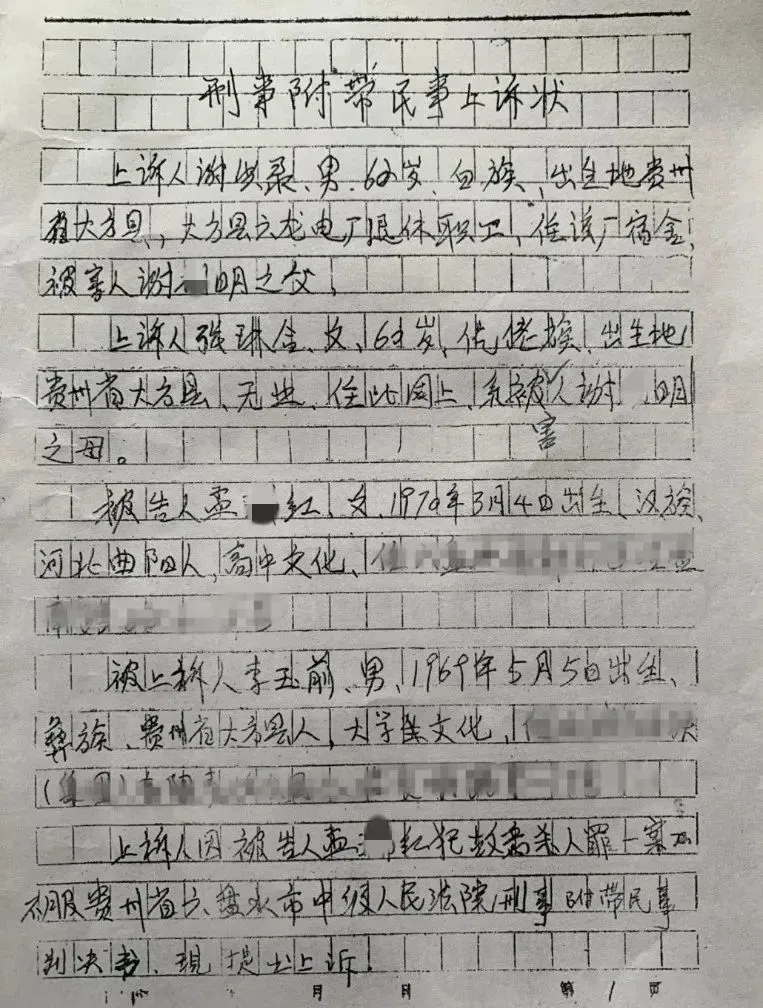 刑事附带民事上诉状
上诉人谢洪录、男、62岁、白族、出生地贵州
省大方县,、大方县六龙电厂退休职工、住该厂宿舍,
被害人谢 明之父,
上诉人张琳仝、女、62岁、仡佬族、出生地
贵州省大方县、无业、住址同上、系被害人谢 明
之母。
被告人孟 红、女、1970年3月4日出生、汉族、
河北曲阳人,高中文化、住
被上诉人李玉前、男、1969年5月5日出生、
彝族、贵州省大方县人,大学文化,
(集团)
上诉人因被告人孟 红犯故意杀人罪一案
不服贵州省六盘水市中级人民法院刑事附带民事
判决书、现提出上诉!
月 日 第1页